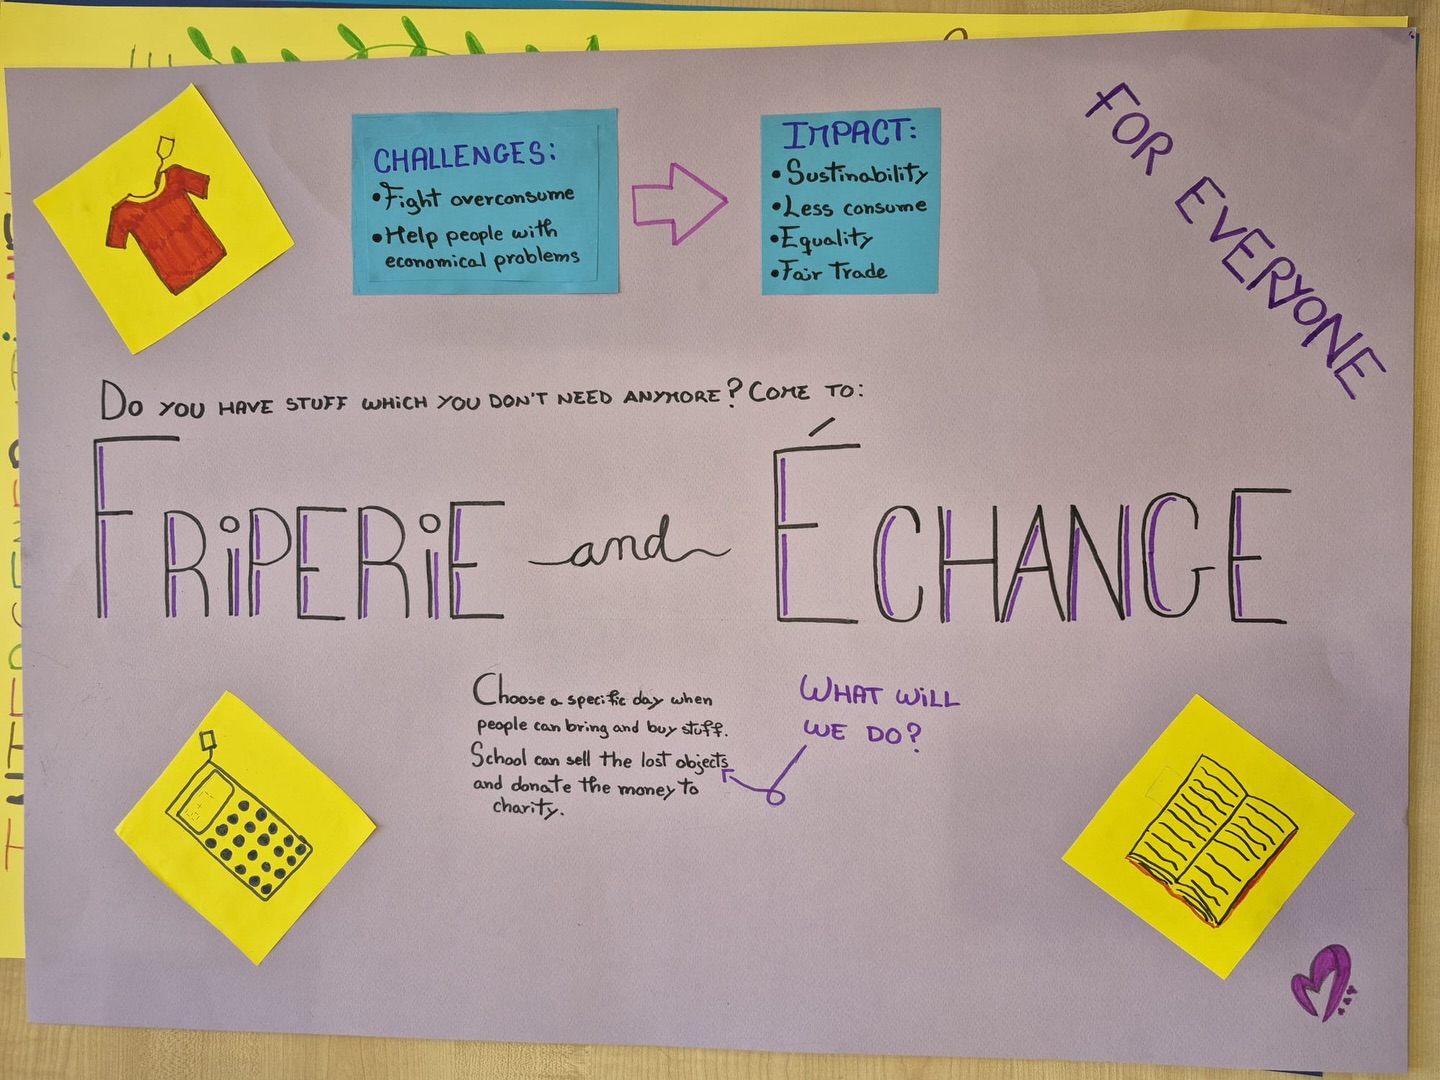 CHALLENGES:
• Fight overconsume
• Help people with
economical problems
IMPACT:
• Sustinability
• Less consume
• Equality
• Fair Trade
FOR EVERYONE
DO YOU HAVE STUFF WHICH YOU DON'T NEED ANYMORE? COME TO:
FRiPERiE and ÉCHANGE
Choose a specific day when
people can bring and buy stuff.
School can sell the lost objects
and donate the money to
charity.
WHAT WiLL
WE DO?